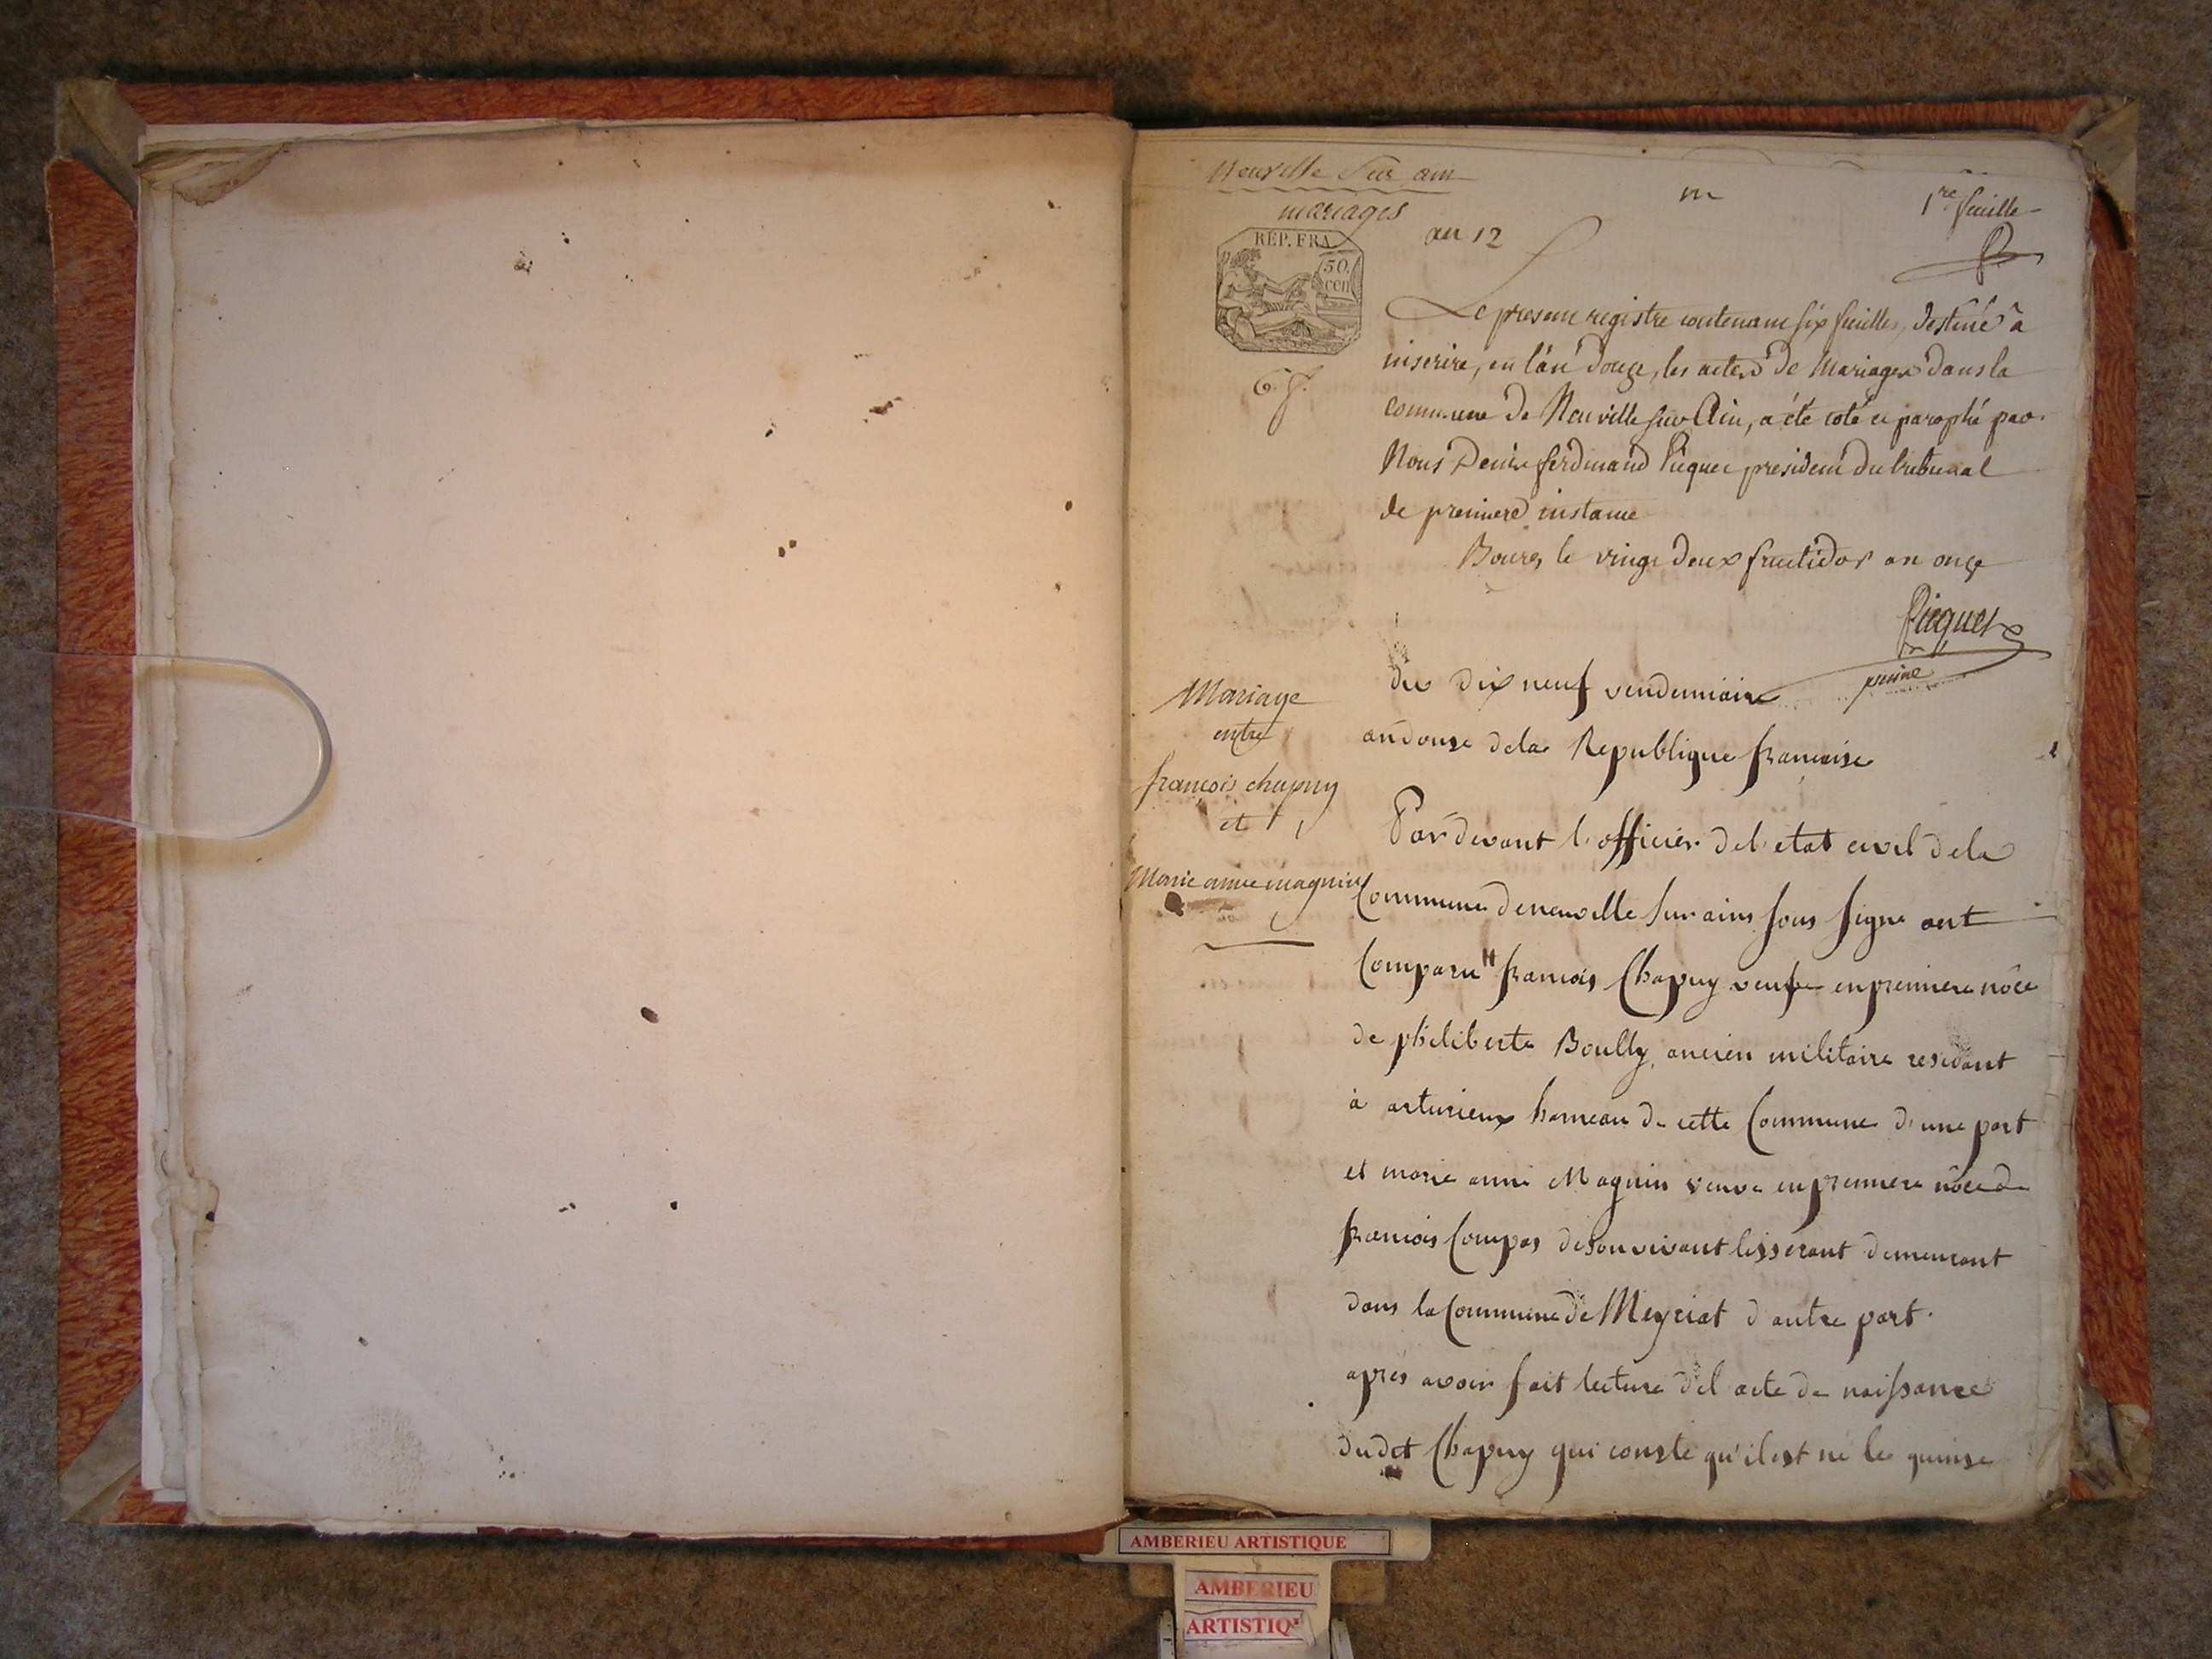 Neuville Sur ain
mariages
an 12
m
1re feuille
REP. FRA.
50.
cen
Le present registre contenant six feuilles, destiné à
inscrire, en l'an douze, les actes de Mariages dans la
commune de Neuville sur Ain, a été coté et paraphé par
Nous Denis ferdinand Picquet president du tribunal
de premiere instance
Bourg le vingt deux fructidor an onze
Picquet
du dix neuf vendemiaire
an douse de la Republique francaise
Mariage
entre
françois chapuy
et
Marie anne magnin
Par devant l'officier de l'etat civil de la
Commune de neuville sur ains sous signe ont
Comparu francois Chapuy veufve en premiere nôce
de philiberte Boully, ancien militaire residant
à arturieux hameau de cette Commune d'une part
et marie anne Magnin veuve en premiere nôce de
francois Compas de son vivant tisserant demeurant
dans la Commune de Meyriat d'autre part.
après avoir fait lecture de l acte de naissance
dudet Chapuy qui conste qu'il est né le quinse
AMBERIEU ARTISTIQUE
AMBERIEU
ARTISTIQ